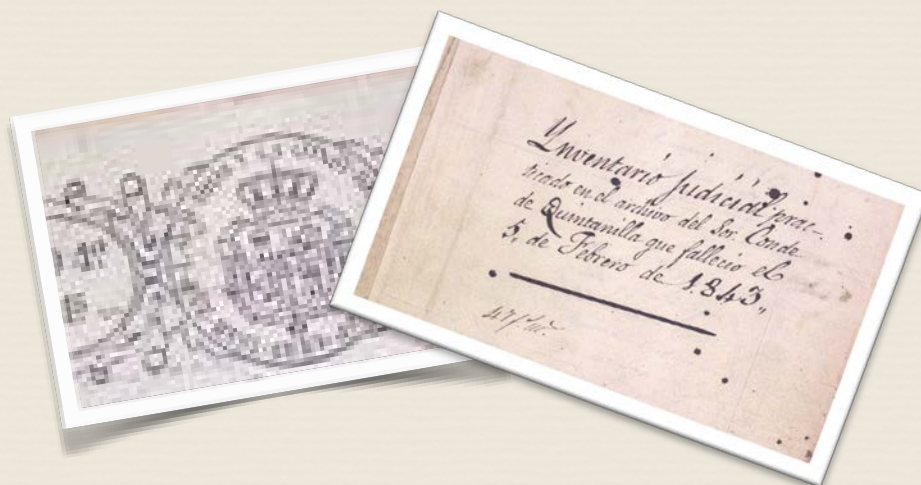 Ynventario judicial prac-
ticado en el archivo del Sor. Conde
de Quintanilla que fallecio el
5, de Febrero de 1.843,,